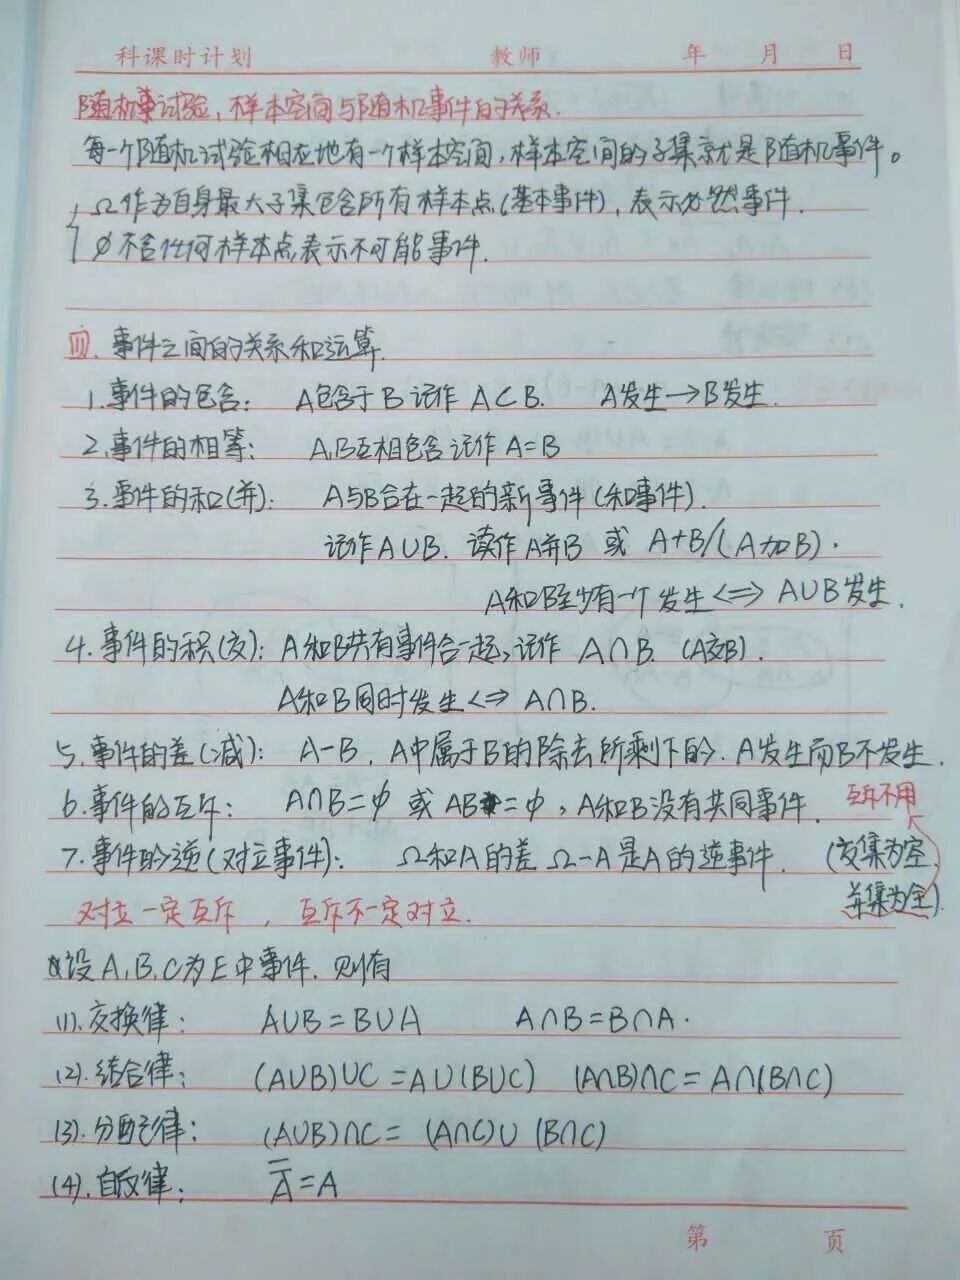 科课时计划 教师 年 月 日
随机事试验，样本空间与随机事件的关系.
每一个随机试验相应地有一个样本空间，样本空间的子集就是随机事件。
Ω作为自身最大子集包含所有样本点(基本事件)，表示必然事件.
∅不含任何样本点表示不可能事件.
三. 事件之间的关系和运算.
1.事件的包含: A包含于B记作A⊂B. A发生→B发生.
2.事件的相等: A,B互相包含记作A=B
3.事件的和(并): A与B合在一起的新事件(和事件).
记作A∪B. 读作A并B 或 A+B/(A加B).
A和B至少有一个发生<=>A∪B发生.
4.事件的积(交): A和B共有事件合一起,记作 A∩B. (A交B).
A和B同时发生<=>A∩B.
5.事件的差(减): A-B, A中属于B的除去所剩下的. A发生而B不发生.
6.事件的互斥: A∩B=φ 或 AB=φ, A和B没有共同事件. 互斥不用
7.事件的逆(对立事件): Ω和A的差 Ω-A是A的逆事件. (交集为空.
并集为全).
对立一定互斥, 互斥不一定对立.
设A,B,C为E中事件. 则有
(1).交换律: A∪B=B∪A A∩B=B∩A.
(2).结合律: (A∪B)∪C=A∪(B∪C) (A∩B)∩C=A∩(B∩C)
(3).分配律: (A∪B)∩C= (A∩C)∪(B∩C)
(4).自反律: A̿=A
第 页